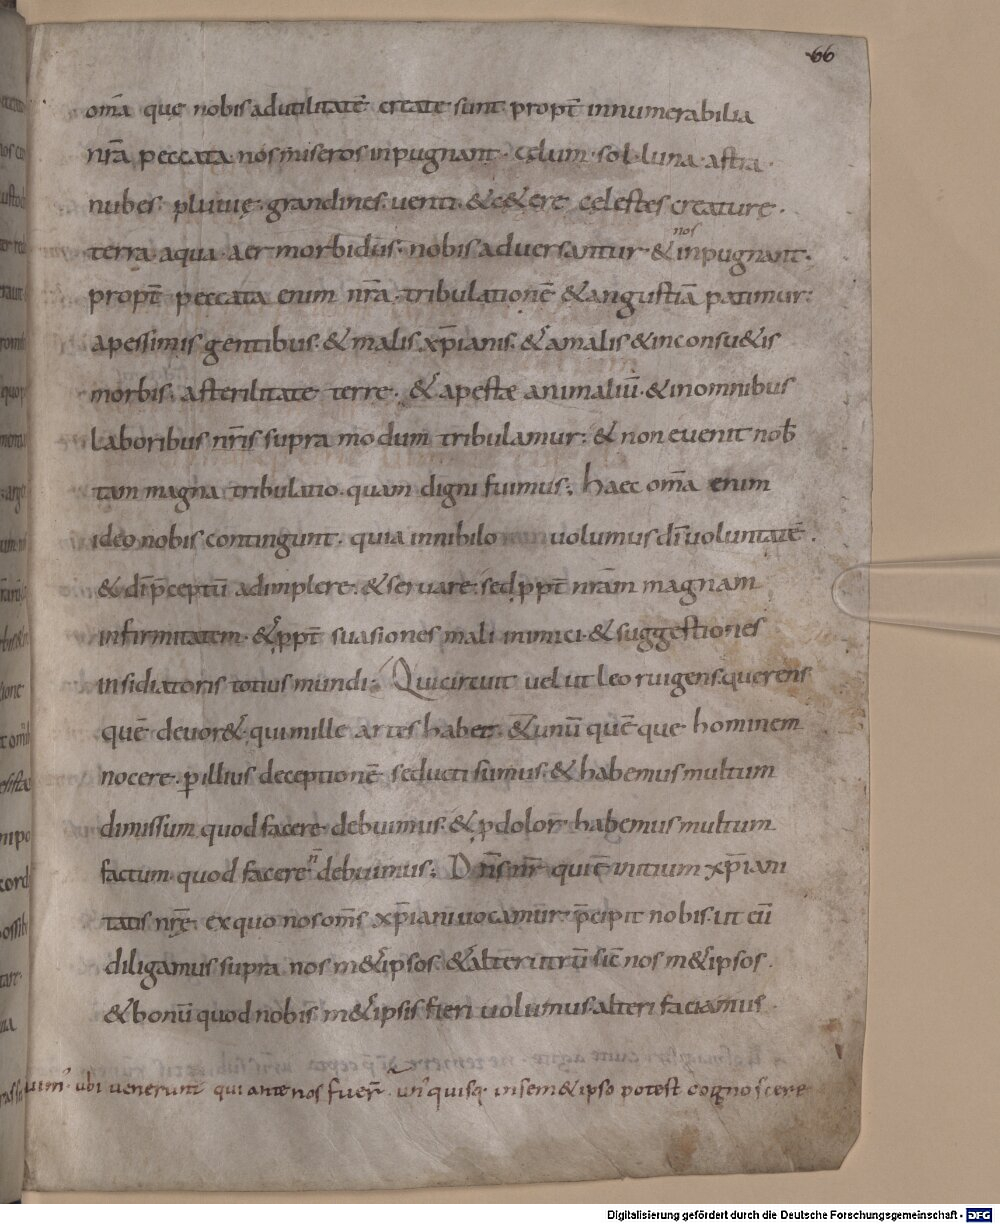 66
om̄a que nobis ad utilitatē create sunt propt̄ innumerabilia
nr̄a peccata nos miseros inpugnant· Cęlum· sol· luna· astra·
nubes· pluuię· grandines· uenti· & c&ere celestes creature·
terra aqua· aer morbidus· nobis aduersantur· & nos inpugnant·
propt̄ peccata enim nr̄a· tribulationē & angustiā patimur:
a pessimis gentibus· & malis xp̄ianis· & a malis & inconsu&is
morbis· a sterilitate terre· & a peste animaliū· & in omnibus
laboribus nr̄is supra modum tribulamur: & non euenit nob̄
tam magna tribulatio· quam digni fuimus; Haec om̄a enim
ideo nobis contingunt· quia in nihilo uolumus dī uoluntatē·
& dī p̄ceptū adimplere· & seruare· sed ppt̄ nr̄am magnam
infirmitatem· & ppt̄ suasiones mali inimici· & suggestiones
insidiatoris totius mundi; Qui circuit uelut leo rugens querens
quē deuor&· qui mille artes habet· & unū quēque hominem
nocere· p illius deceptionē seducti sumus· & habemus multum
dimissum quod facere debuimus· & p dolor habemus multum
factum quod facere n̄ debuimus; Dn̄s nr̄ qui ē initium xp̄iani
tatis nr̄ę ex quo nos om̄s xp̄iani uocamur· p̄cipit nobis· ut eū
diligamus supra nos m&ipsos· & alterutrū sic̄ nos m&ipsos·
& bonū quod nobis m&ipsis fieri uolumus alteri faciamus·
ubi uenerunt qui ante nos fuer̄ un'quisq· in sem&ipso potest cognoscere
Digitalisierung gefördert durch die Deutsche Forschungsgemeinschaft - DFG